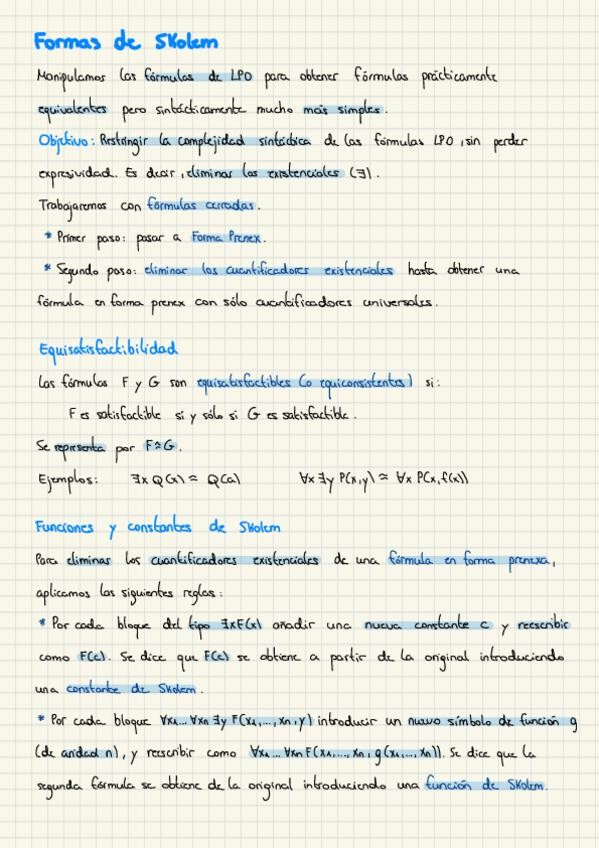 Formas de Skolem
Manipulamos las fórmulas de LPO para obtener fórmulas prácticamente
equivalentes pero sintácticamente mucho más simples.
Objetivo: Restringir la complejidad sintáctica de las fórmulas LPO, sin perder
expresividad. Es decir, eliminar los existenciales (∃).
Trabajaremos con fórmulas cerradas.
* Primer paso: pasar a Forma Prenex.
* Segundo paso: eliminar los cuantificadores existenciales hasta obtener una
fórmula en forma prenex con sólo cuantificadores universales.
Equisatisfactibilidad
Las fórmulas F y G son equisatisfactibles (o equiconsistentes) si:
F es satisfactible si y sólo si G es satisfactible.
Se representa por F≈G.
Ejemplos: ∃x Q(x) ≈ Q(a) ∀x ∃y P(x,y) ≈ ∀x P(x,f(x))
Funciones y constantes de Skolem
Para eliminar los cuantificadores existenciales de una fórmula en forma prenexa,
aplicamos las siguientes reglas:
* Por cada bloque del tipo ∃xF(x) añadir una nueva constante c y reescribir
como F(c). Se dice que F(c) se obtiene a partir de la original introduciendo
una constante de Skolem.
* Por cada bloque ∀x₁... ∀xn ∃y F(x₁,..., xn,y) introducir un nuevo símbolo de función g
(de aridad n), y reescribir como ∀x₁... ∀xn F(x₁,..., xn, g(x₁,..., xn)). Se dice que la
segunda fórmula se obtiene de la original introduciendo una función de Skolem.